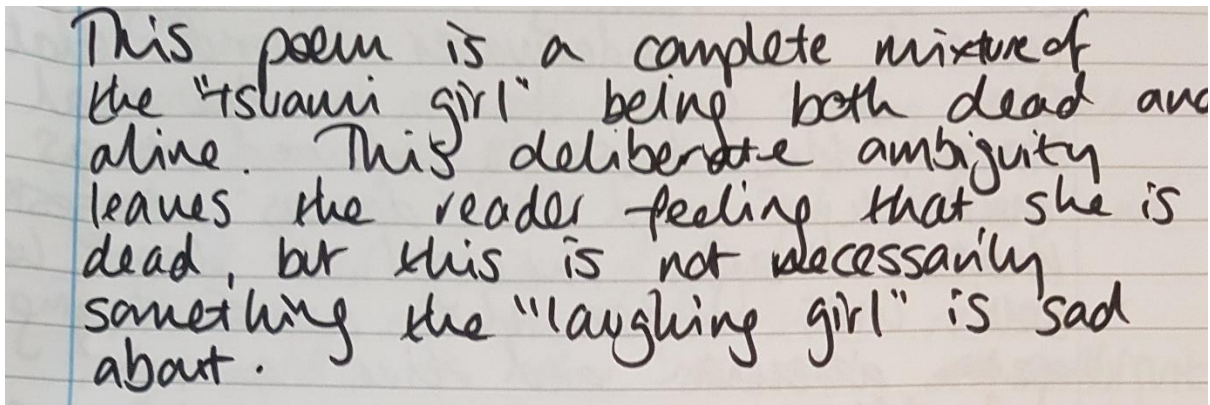 This poem is a complete mixture of
the "tsunami girl" being both dead and
alive. This deliberate ambiguity
leaves the reader feeling that she is
dead, but this is not necessarily
something the "laughing girl" is sad
about.